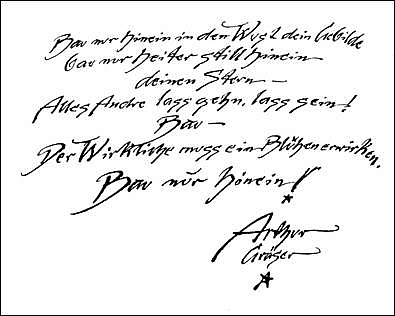 Bau nur hinein in den Wust dein Gebilde
bau nur heiter still hinein
deinen Stern –
Alles Andre lass gehn, lass sein!
Bau –
Der Wirkliche muss ein Blühen erwirken.
Bau nur hinein!
Arthur
Gräser